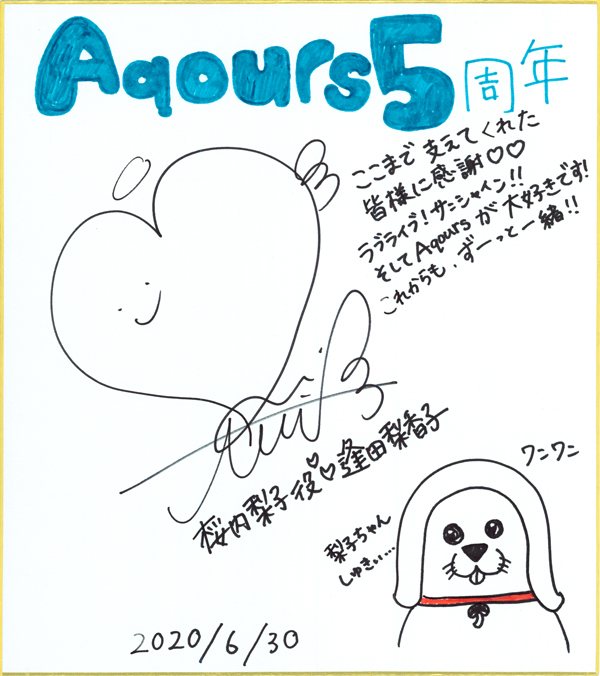 Aqours5周年
ここまで 支えてくれた
皆様に感謝♡♡
ラブライブ!サンシャイン!!
そしてAqoursが大好きです!
これからも、ずーっと一緒!!
桜内梨子役♡♡逢田梨香子
ワンワン
梨子ちゃん
しゅきぃ…
2020/6/30